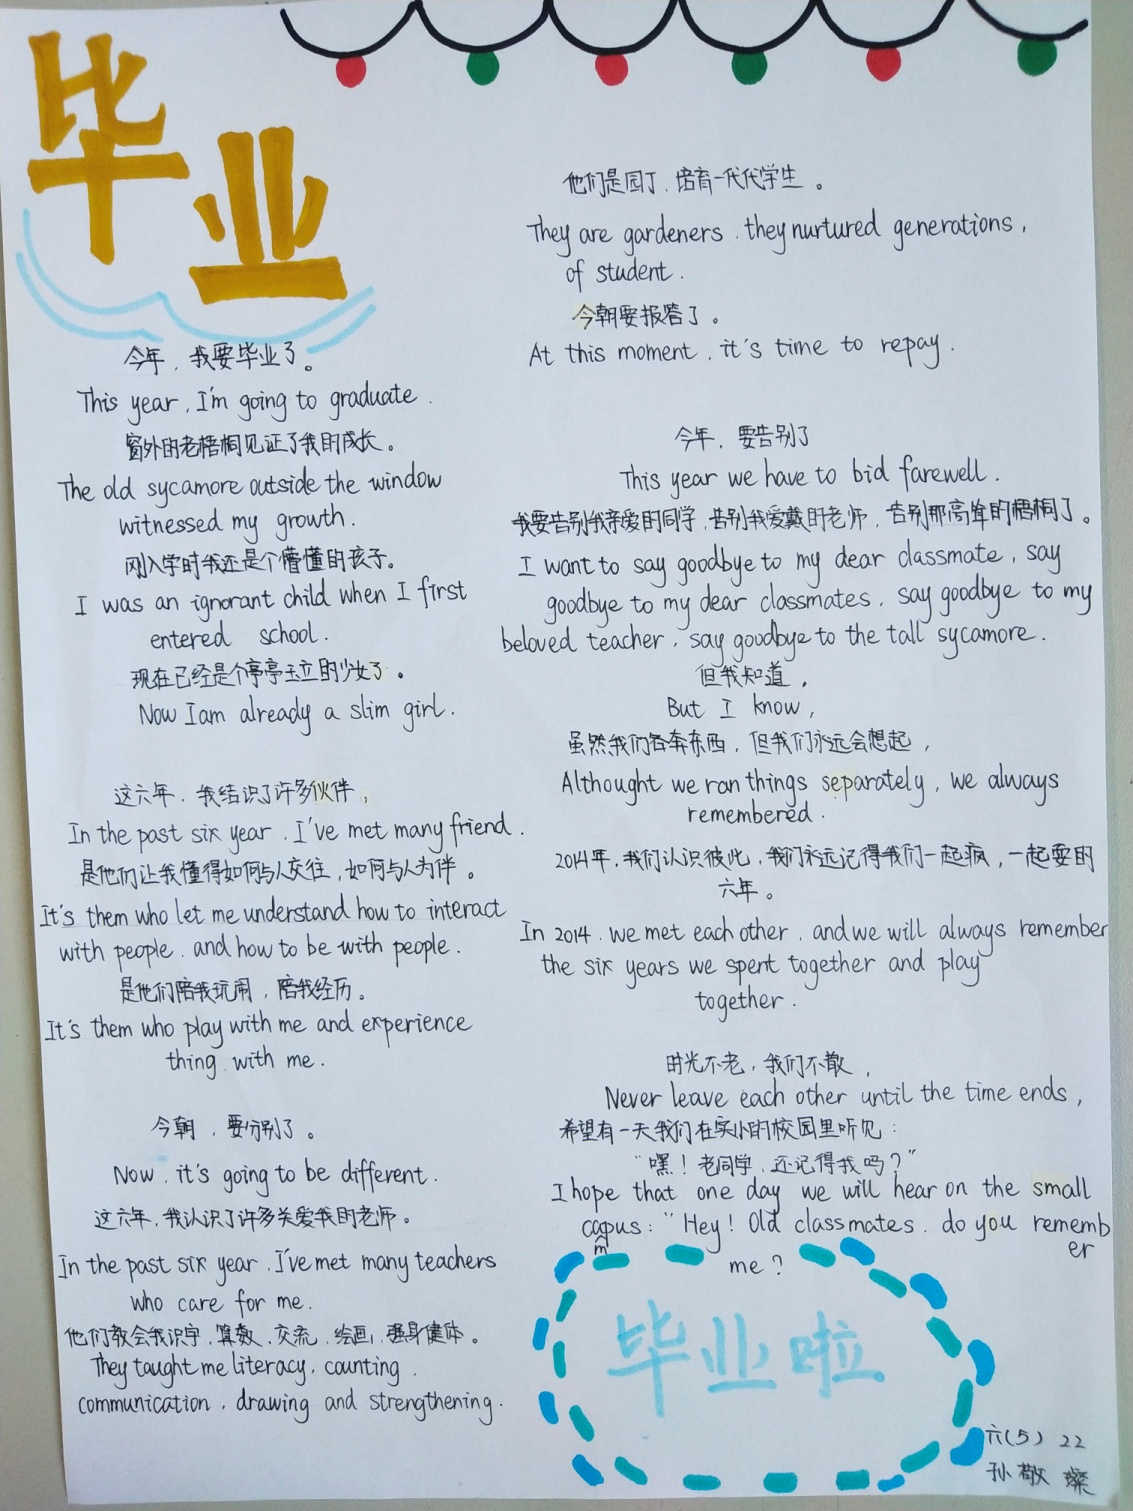 毕业
今年，我要毕业了。
This year, I'm going to graduate.
窗外的老梧桐见证了我的成长。
The old sycamore outside the window
witnessed my growth.
刚入学时我还是个懵懂的孩子。
I was an ignorant child when I first
entered school.
现在已经是个亭亭玉立的少女了。
Now I am already a slim girl.
这六年，我结识了许多伙伴，
In the past six year, I've met many friend.
是他们让我懂得如何与人交往，如何与人为伴。
It's them who let me understand how to interact
with people, and how to be with people.
是他们陪我玩闹，陪我经历。
It's them who play with me and experience
thing with me.
今朝，要分别了。
Now, it's going to be different.
这六年，我认识了许多关爱我的老师。
In the past six year, I've met many teachers
who care for me.
他们教会我识字，算数，交流，绘画，强身健体。
They taught me literacy, counting,
communication, drawing and strengthening.
他们是园丁，培育一代代学生。
They are gardeners, they nurtured generations,
of student.
今朝要报答了。
At this moment, it's time to repay.
今年，要告别了
This year we have to bid farewell.
我要告别我亲爱的同学，告别我爱戴的老师，告别那高耸的梧桐了。
I want to say goodbye to my dear classmate, say
goodbye to my dear classmates, say goodbye to my
beloved teacher, say goodbye to the tall sycamore.
但我知道，
But I know,
虽然我们各奔东西，但我们永远会想起，
Althought we ran things separately, we always
remembered.
2014年，我们认识彼此，我们永远记得我们一起疯，一起耍的
六年。
In 2014, we met each other, and we will always remember
the six years we spent together and play
together.
时光不老，我们不散，
Never leave each other until the time ends,
希望有一天我们在实小的校园里听见：
“嘿！老同学，还记得我吗？”
I hope that one day we will hear on the small
campus: "Hey! Old classmates, do you rememb
er
me?
毕业啦
六(5) 22
孙敬璨